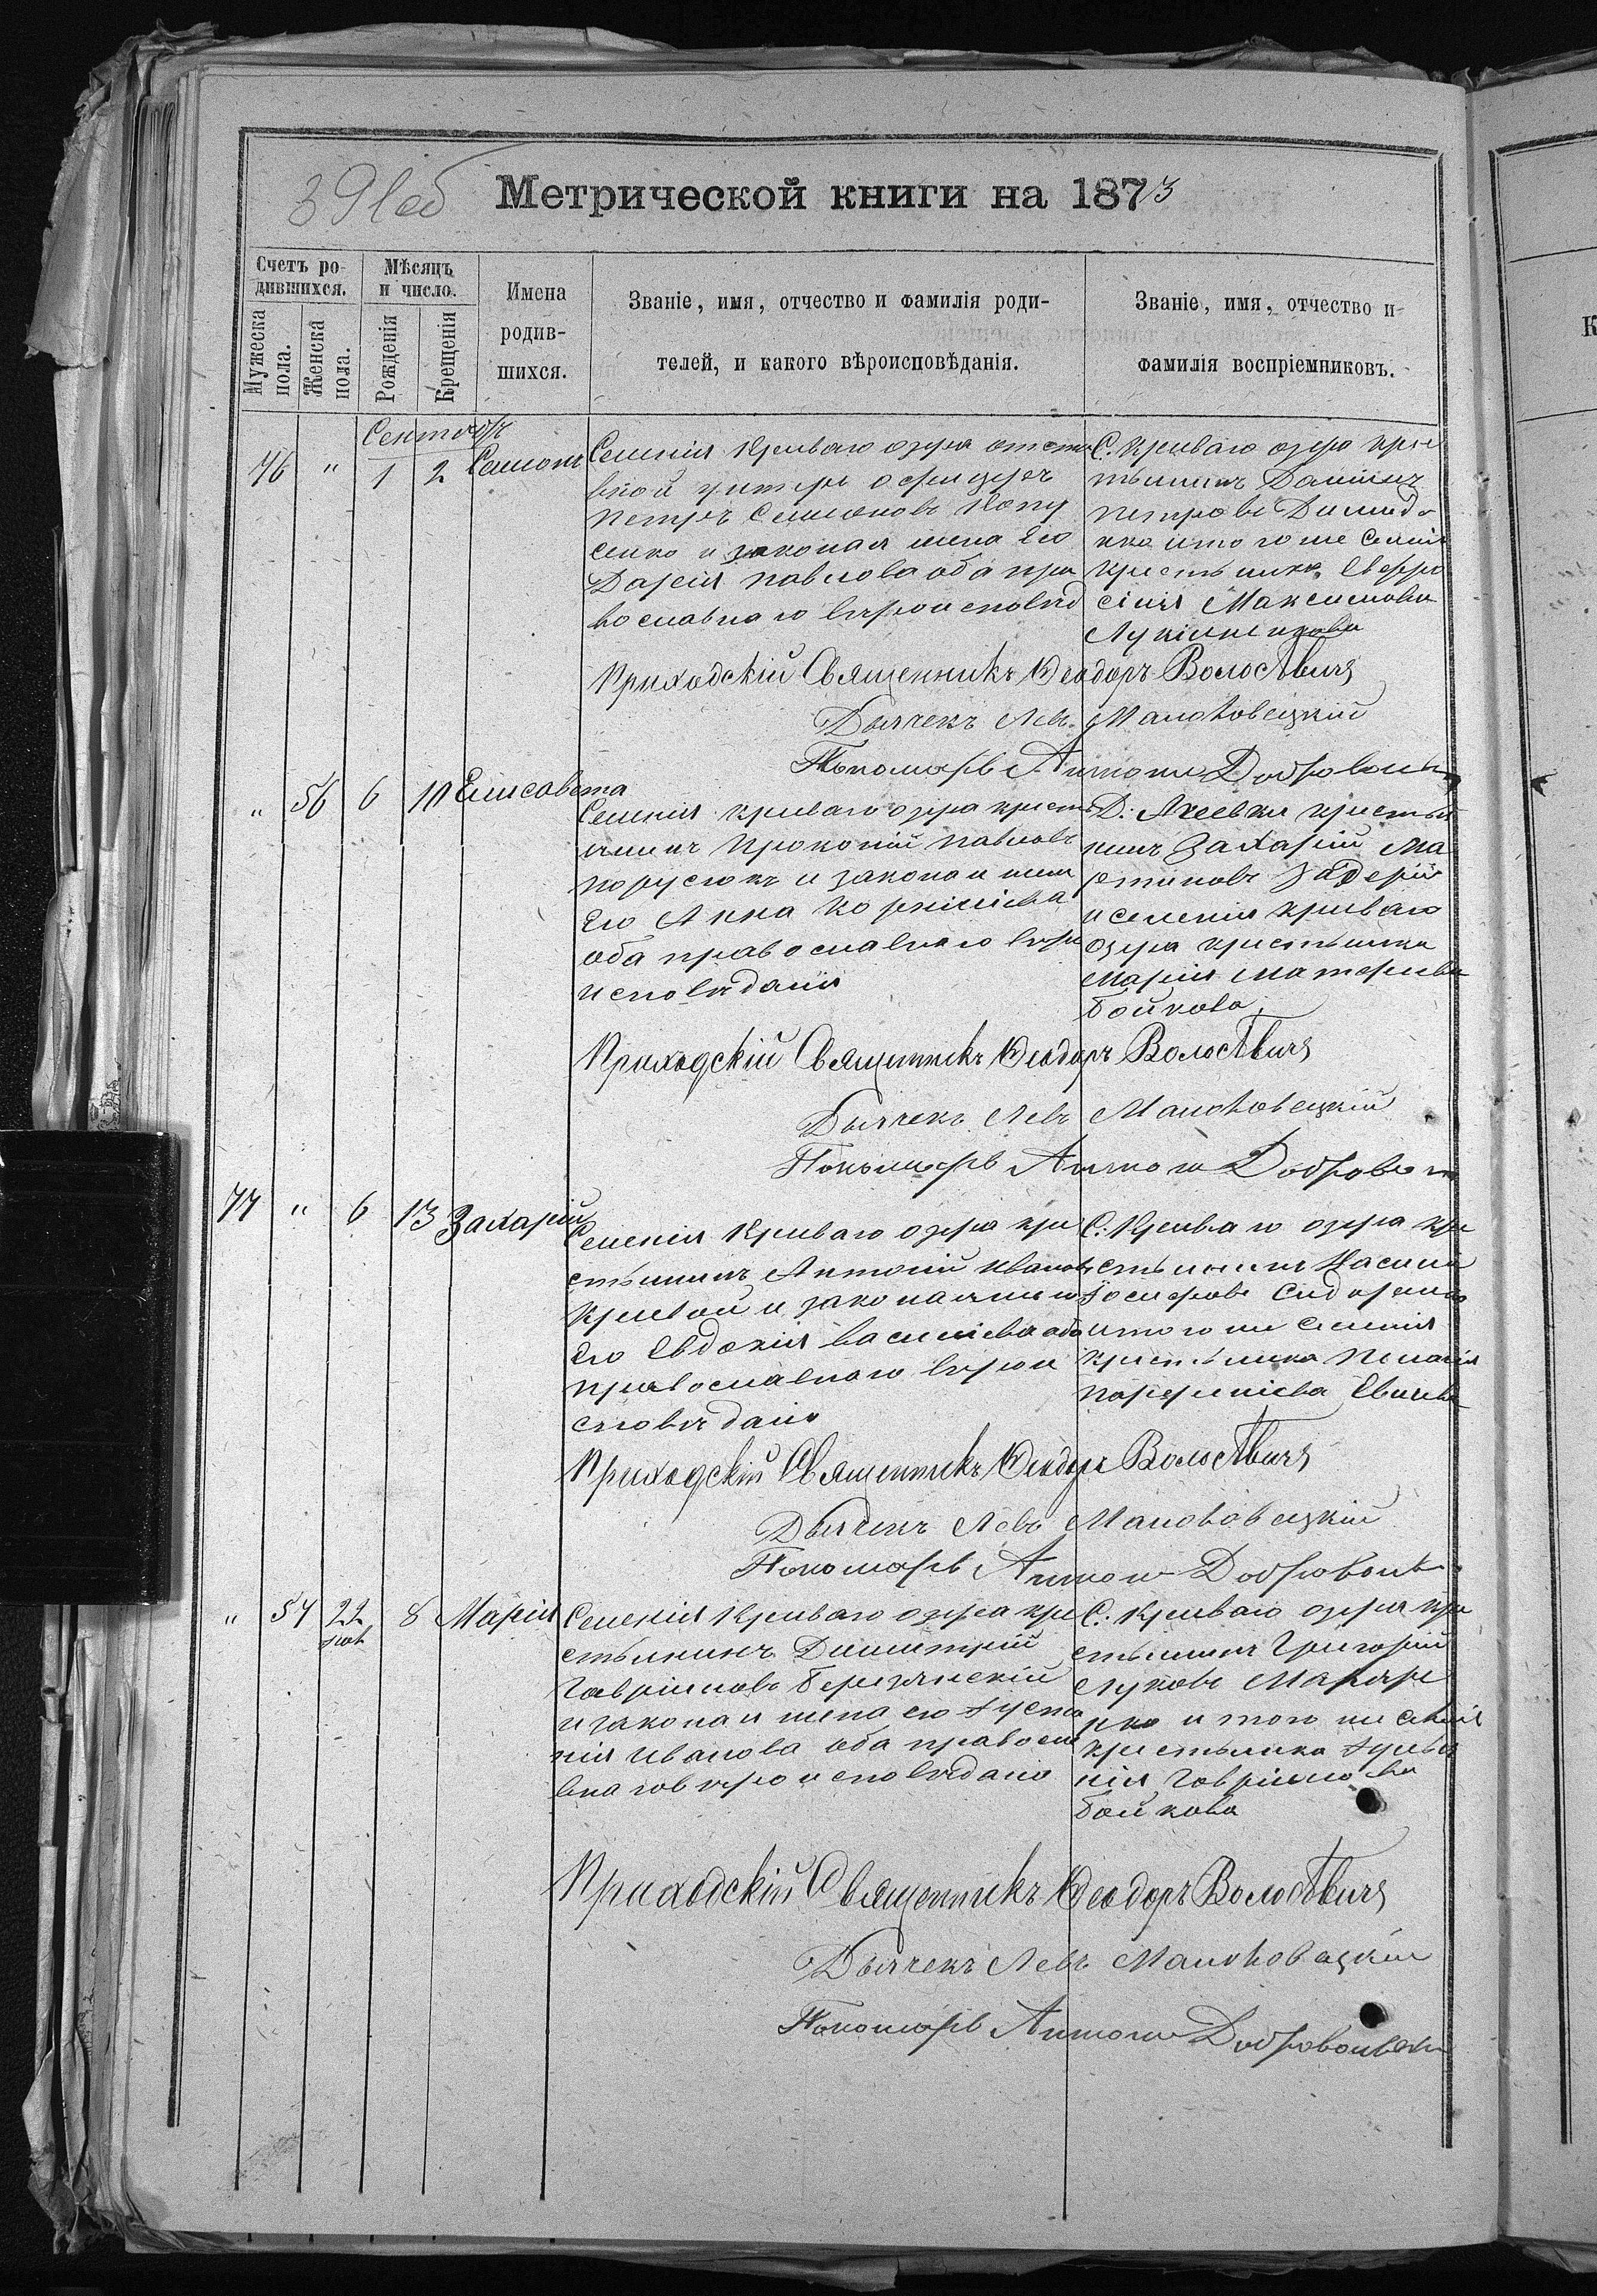 39 об
Метрической книги на 1873
Счетъ ро-
дившихся.
Мужеска
пола.
Женска
пола.
Мѣсяцъ
и число.
Рожденія
Крещенія
Имена
родив-
шихся.
Званіе, имя, отчество и фамилія роди-
телей, и какого вѣроисповѣданія.
Званіе, имя, отчество и
фамилія воспріемниковъ.
Сентябрь
76 " 1 2 Симеонъ
Селенія Криваго озера отста
вной унтеръ офицеръ
Петръ Симеоновъ
сенко и законая жена Его
Дарія Павлова оба пра
вославнаго вѣроисповѣд
С. Криваго озера крес
тьянинъ Даніилъ
Петровъ
и того же селенія
крестьянка Евфро
сінія Максимова
Приходскій Священникъ Ѳеодоръ
Дьячекъ Левъ
Пономарь Антоній
" 56 6 10 Елисавета
Селенія Криваго озера кресть
янинъ Прокопій Павловъ
и законая жена
Его Анна Корнилiева
оба православнаго вѣро
исповѣданія
Д. крестья
нинъ Захарій Ма
ртиновъ
и селенія Криваго
озера крестьянка
Марія
Бойкова.
Приходскій Священникъ Ѳеодоръ
Дьячекъ Левъ
Пономарь Антоній
77 " 6 13 Захарій
Селенія Криваго озера кре
стьянинъ Антоній Ивановъ
Кривой и законая жена
Его Евдокія Васильева оба
православнаго вѣрои
сповѣданія
С. Криваго озера кре
стьянинъ Василій
Іосифовъ Сидоренко
и того же селенія
крестьянка Пелагія
Приходскій Священникъ Ѳеодоръ
Дьячекъ Левъ
Пономарь Антоній
" 57 22 8 Марія
Селенія Криваго озера кре
стьянинъ Димитрій
Гавріиловъ Березянскій
и законая жена его Іуста
нія Иванова оба правосла
внаго вѣроисповѣданія
С. Криваго озера кре
стьянинъ Григорій
Луковъ
и того же селенія
крестьянка Іулья
нія Гавріилова
Бойкова
Приходскій Священникъ Ѳеодоръ
Дьячекъ Левъ
Пономарь Антоній